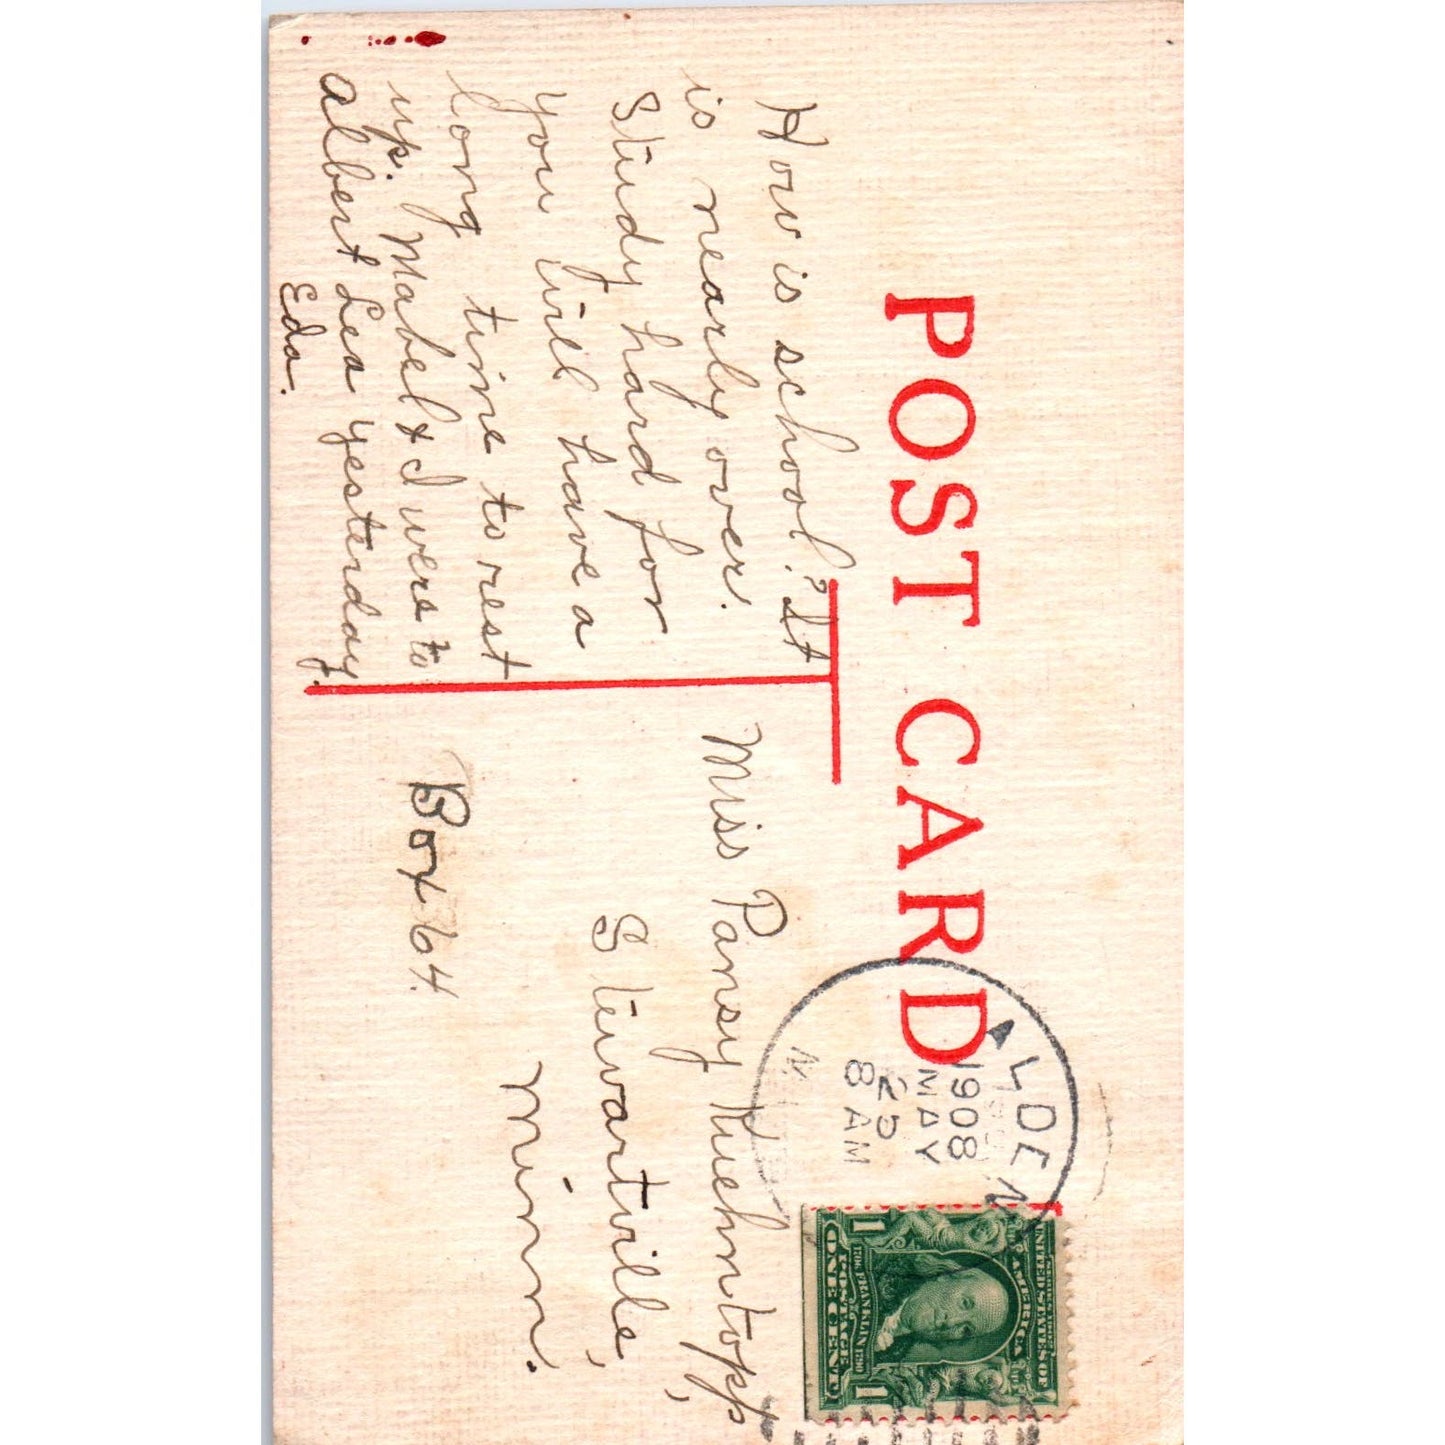 POST CARD
How is school? It
is nearly over.
Study hard for
you will have a
long time to rest
up. Mabel & I were to
Albert Lea yesterday.
Eda.
Miss Pansy Kuehntopp,
Stewartville,
Minn.
Box 64.
ALDEN
1908
MAY
25
8 AM
UNITED STATES OF
AMERICA
1706 FRANKLIN 1790
POSTAGE
1 ONE CENT 1